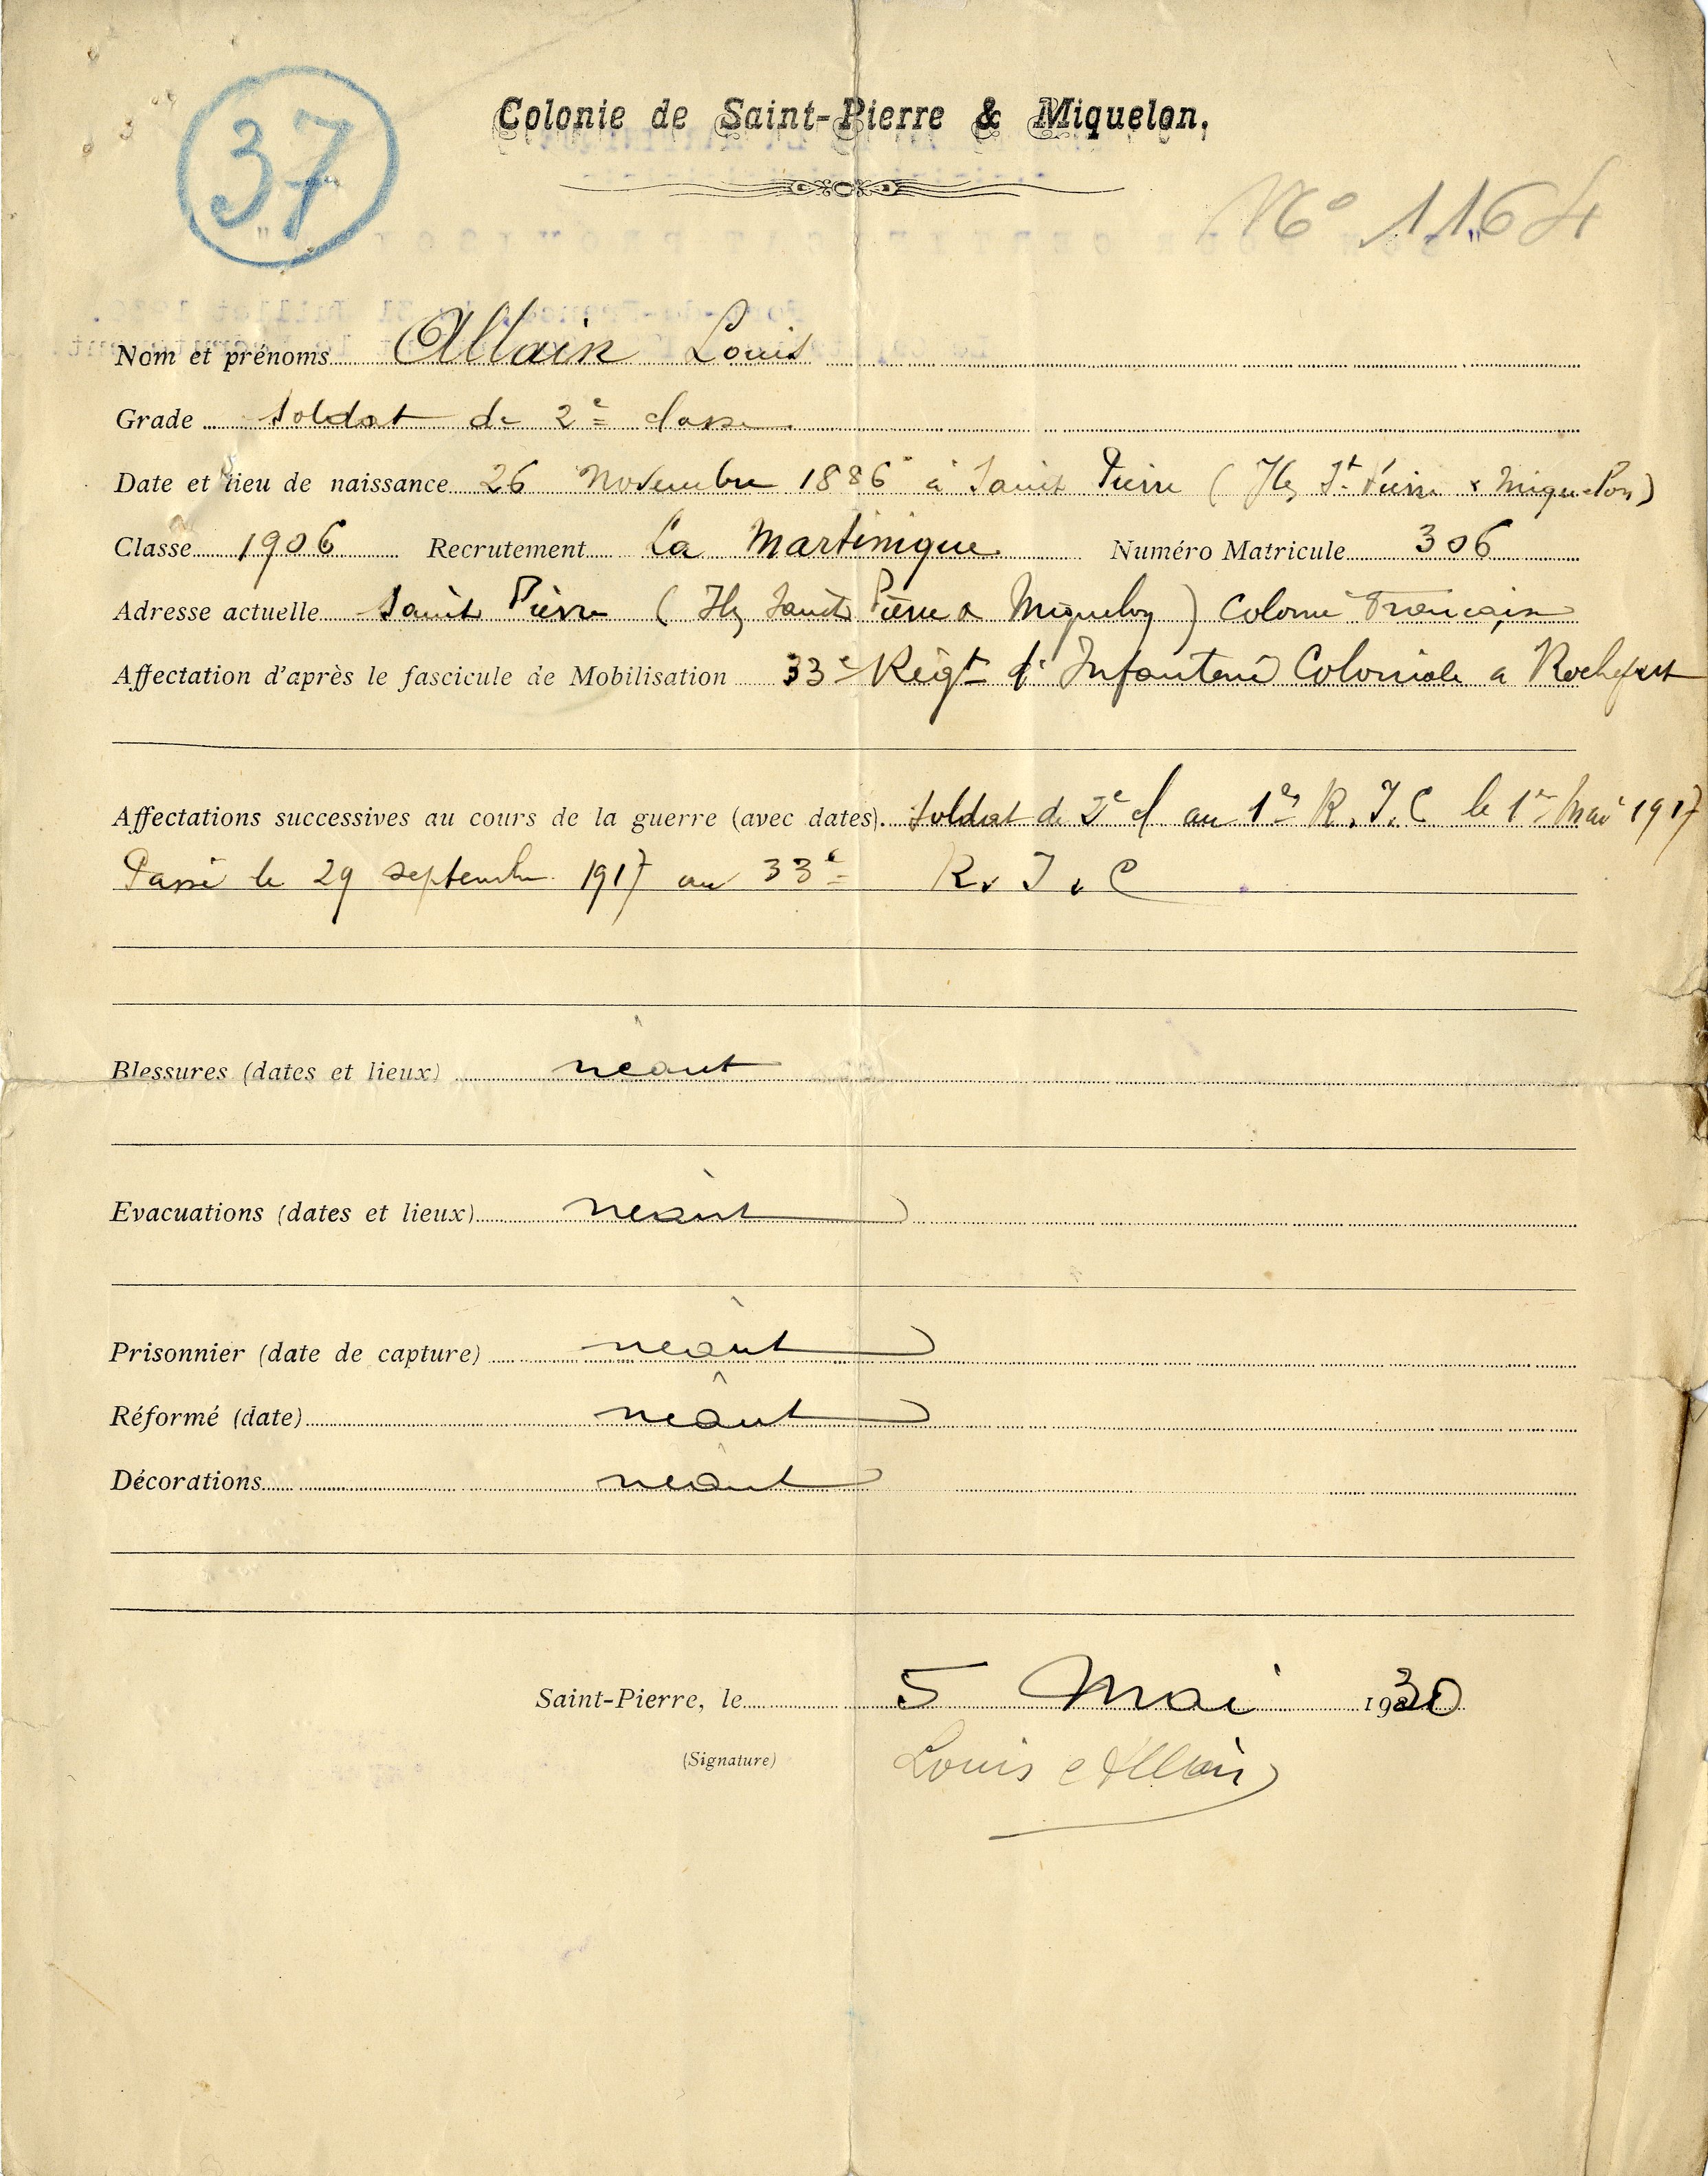 37
Colonie de Saint-Pierre & Miquelon.
N° 1164
Nom et prénoms Allain Louis
Grade Soldat de 2e classe
Date et lieu de naissance 26 Novembre 1886 à Saint Pierre (Iles St Pierre & Miquelon)
Classe 1906 Recrutement La Martinique Numéro Matricule 306
Adresse actuelle Saint Pierre (Iles Saint Pierre & Miquelon) Colonie Française
Affectation d'après le fascicule de Mobilisation 33e Régt d'Infanterie Coloniale a Rochefort
Affectations successives au cours de la guerre (avec dates). Soldat de 2e cl au 1er R.I.C le 1er Mai 1917
Passé le 29 septembre 1917 au 33e R.I.C
Blessures (dates et lieux) néant
Evacuations (dates et lieux) néant
Prisonnier (date de capture) néant
Réformé (date) néant
Décorations néant
Saint-Pierre, le 5 Mai 1930
(Signature) Louis Allain